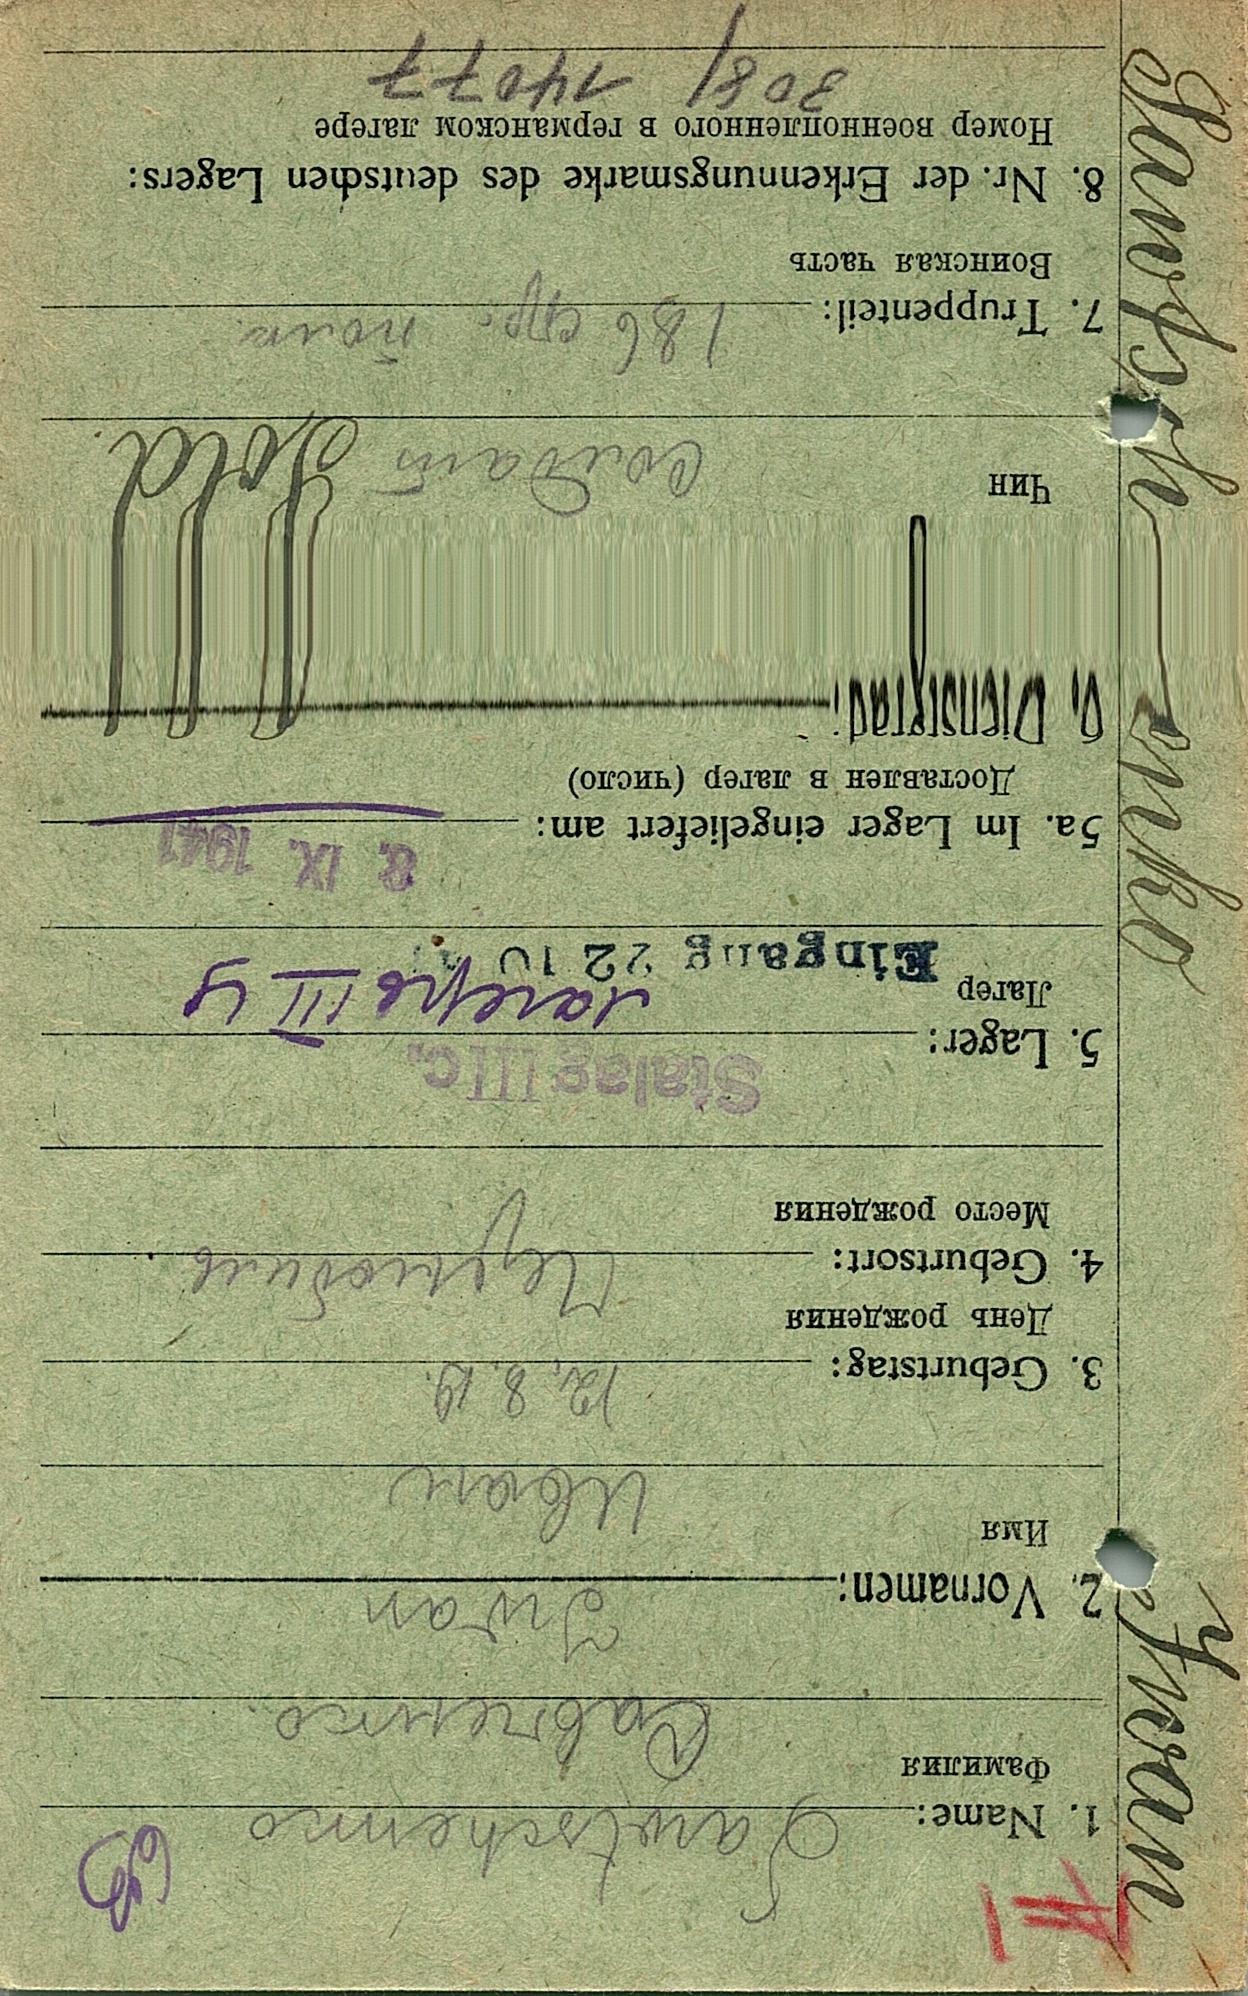 1. Name: Sawtschenko
Фамилия Савченко.
2. Vornamen: Iwan
Имя Иван
3. Geburtstag: 12.8.19.
День рождения
4. Geburtsort: Чернобиль
Место рождения
Stalag III c.
5. Lager:
Лагер лагерь III Ц
Eingang 22 10
8. IX. 1941
5a. Im Lager eingeliefert am:
Доставлен в лагер (число)
6. Dienstgrad: Sold.
Чин солдат
7. Truppenteil: 186 стр. полк
Воинская часть
8. Nr. der Erkennungsmarke des deutschen Lagers:
Номер военнопленного в германском лагере
308/ 14077
Iwan